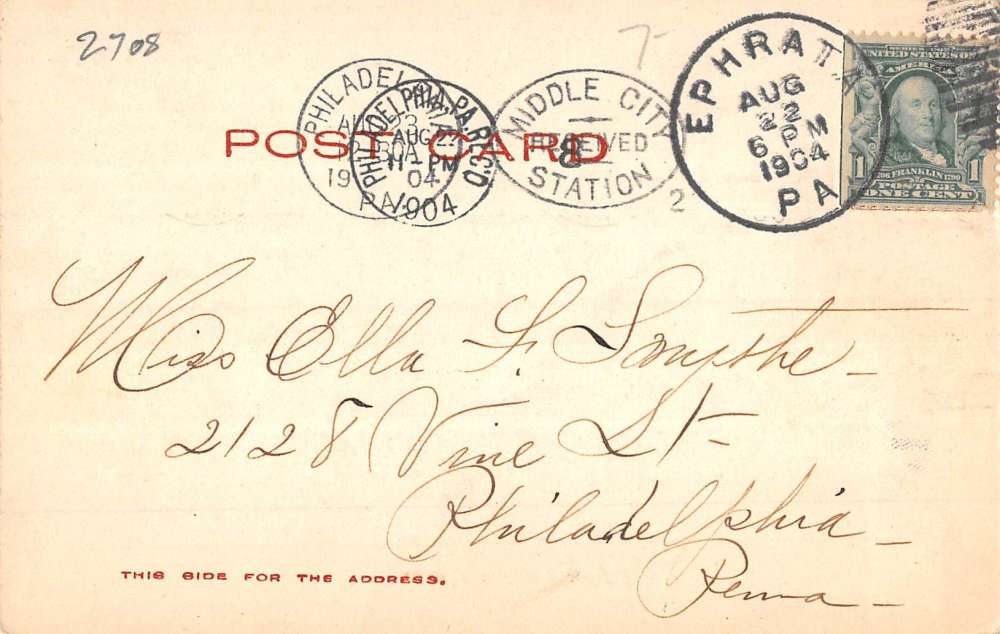 2708
7-
EPHRATA
AUG
22
6 PM
1904
PA
SERIES 1902
UNITED STATES OF
AMERICA
1 FRANKLIN 1790 1
POSTAGE
ONE CENT
PHILADELPHIA, PA. REC'D.
AUG 22
11 - PM
04
1904
PHILADELPHIA
PA
MIDDLE CITY
RECEIVED
8
STATION
2
POST CARD
Miss Ella F. Smythe -
2128 Vine St -
Philadelphia -
Penna -
THIS SIDE FOR THE ADDRESS.